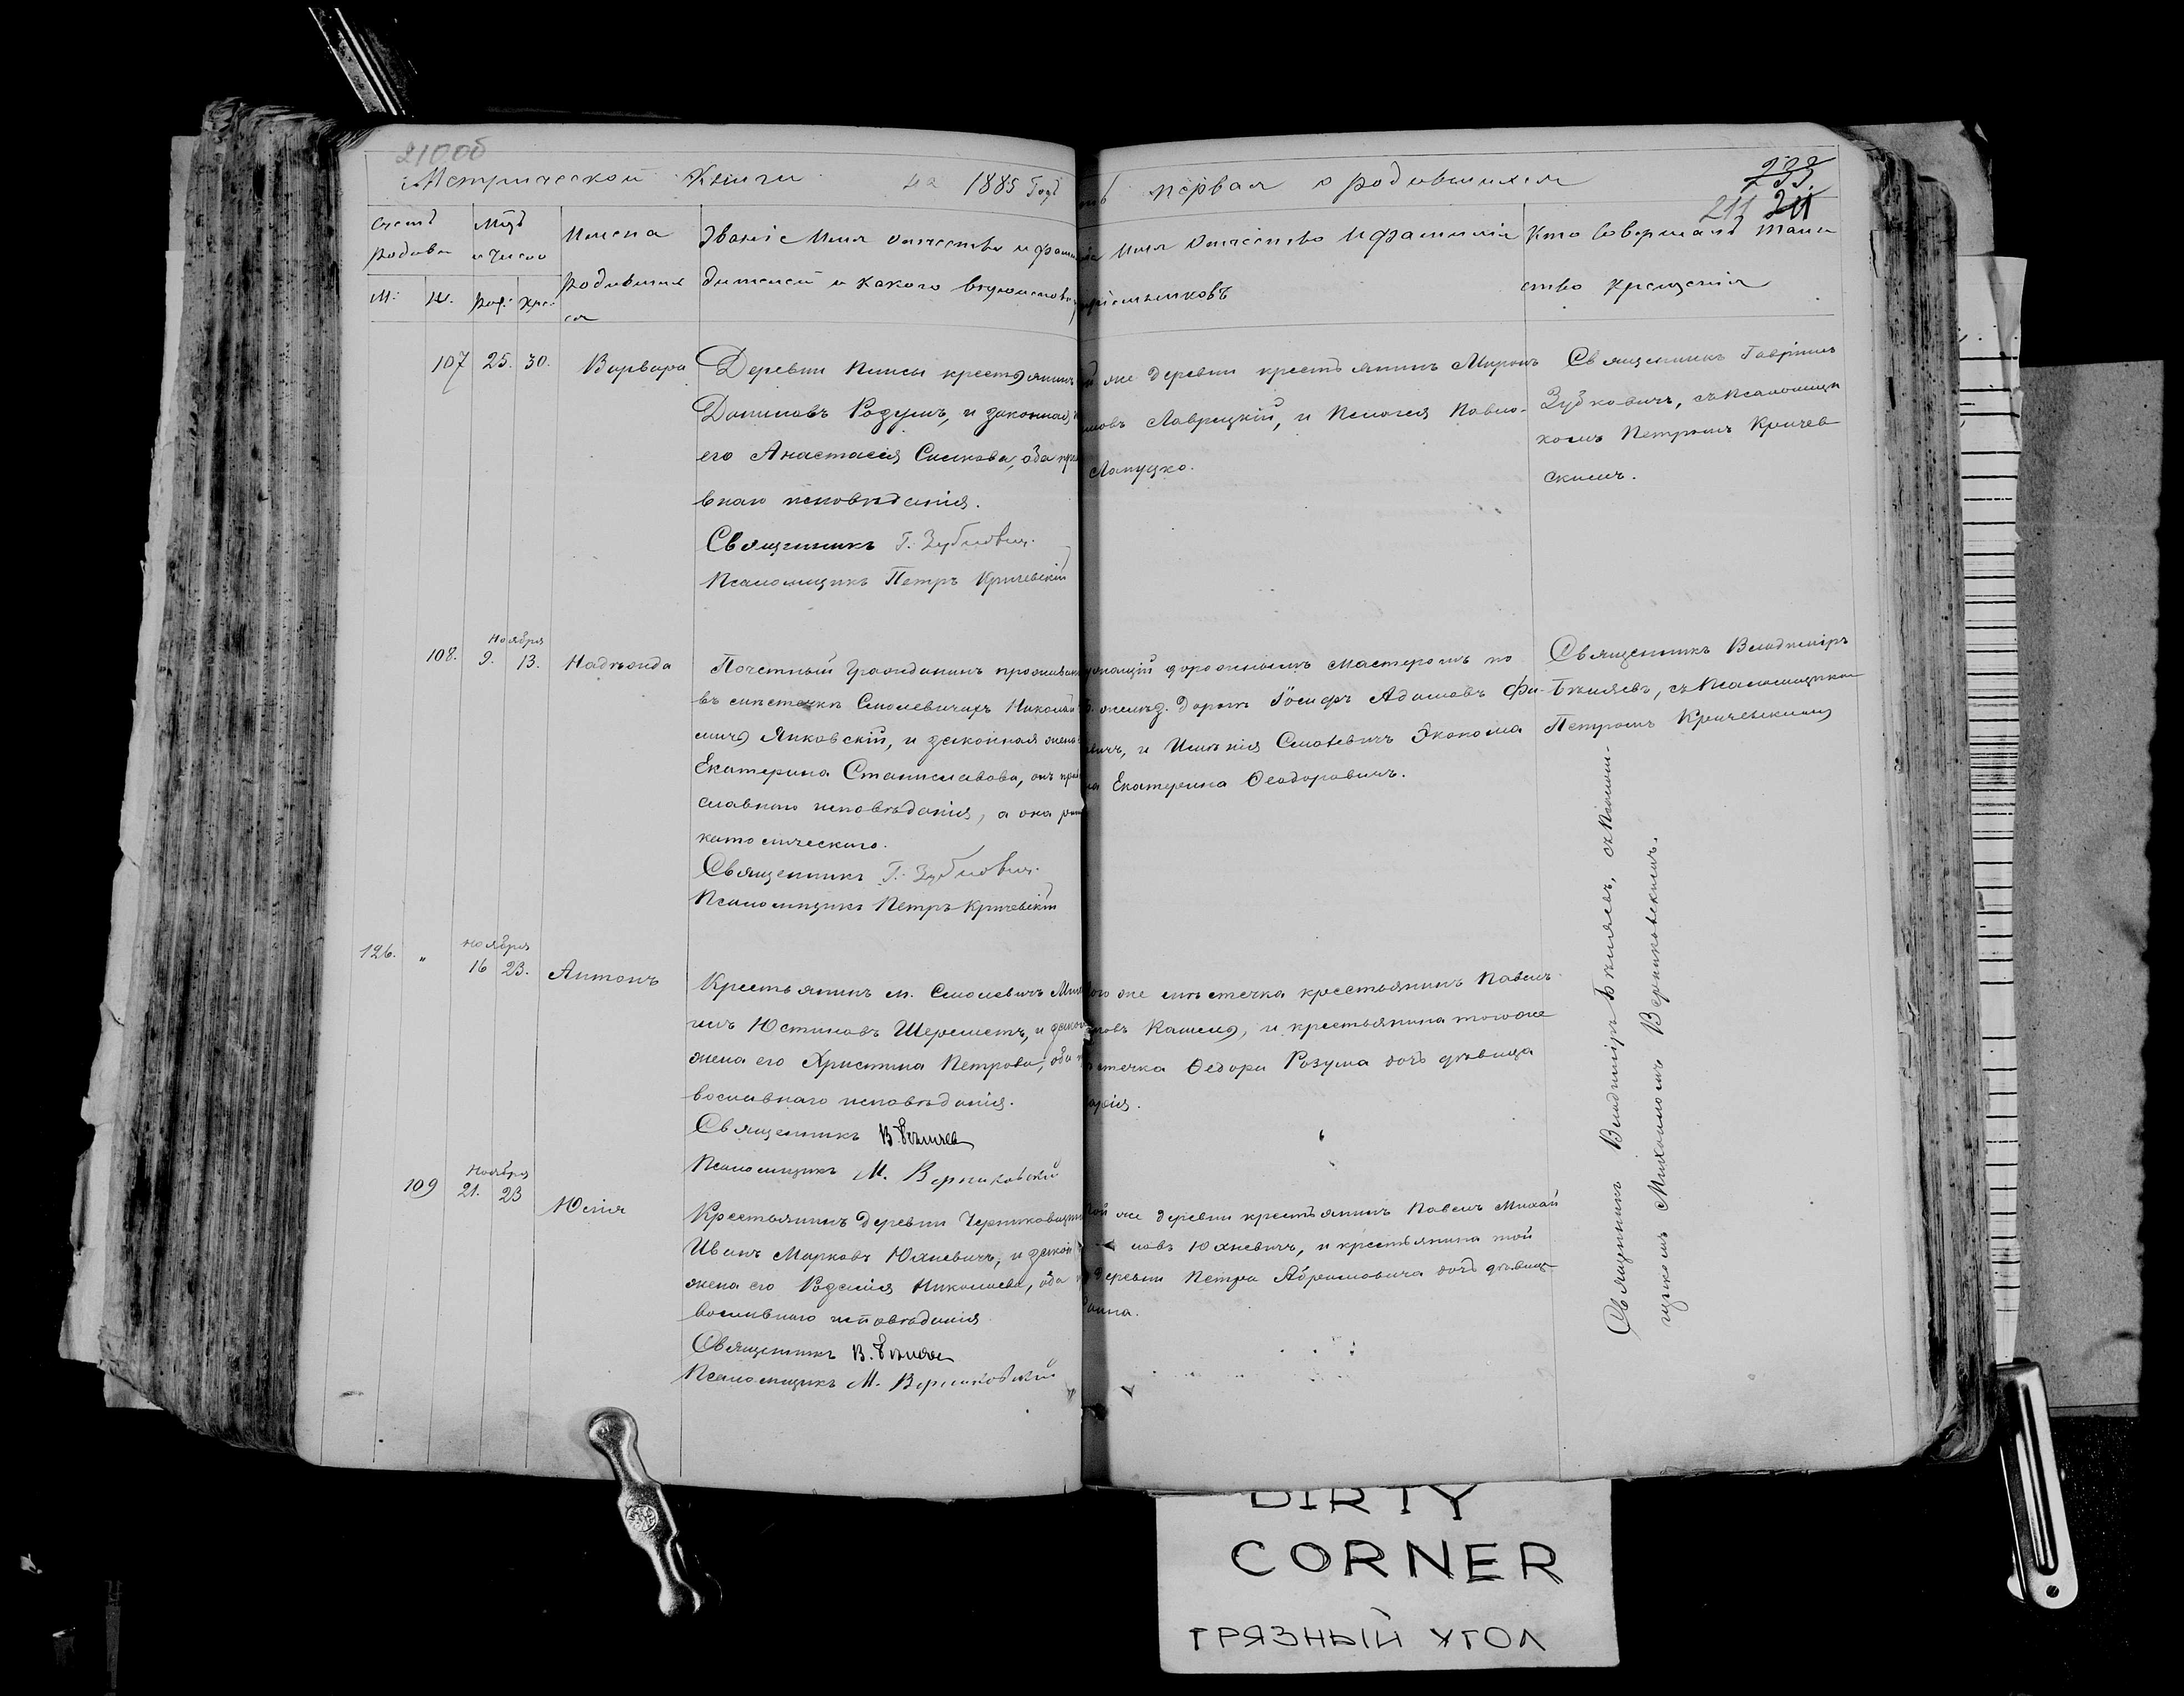 210об
Метрической Книги на 1885 Годъ
первая о родившихся
233.
211 211
Счетъ родивш
Мѣц и Число
М. Ж. Рож: Крещ:
Имена
родивших
ся
Званіе Имя Отчество и фами
дителей и какого вѣроисповѣ
Имя Отчество и фамилія
пріемниковъ
Кто совершалъ таин
ство крещенія
107 25. 30. Варвара
Деревни Плисы крестьянинъ
Даниловъ Розумъ, и законная
его Анастасія Симкова, оба пра
внаго исповѣданія.
Священникъ Г. Зубковичъ.
Псаломщикъ Петръ Кричевскій
же деревни крестьянинъ Миронъ
Лаврецкій, и Пелагея Павло-
Лапуцко.
Священникъ Гавріилъ
Зубковичъ, съ псаломщи
комъ Петромъ Кричев
скимъ.
108. Ноября
9. 13. Надежда
Почетный гражданинъ проживаю
въ мѣстечкѣ Смолевичахъ Николай
Янковскій, и законная жена
Екатерина Станиславова, онъ пра
славнаго исповѣданія, а она рим
католическаго.
Священникъ Г. Зубковичъ.
Псаломщикъ Петръ Кричевскій
дорожнымъ мастеромъ по
желѣз. дорогѣ Іосифъ Адамовъ Фи-
и Имѣнія Смолевичъ Эконома
Екатерина Ѳеодоровичъ.
Священникъ Владиміръ
Бѣляевъ, съ Псаломщикомъ
Петромъ Кричевскимъ
126. " Ноября
16 23. Антонъ
Крестьянинъ м. Смолевичъ Мих
Юстиновъ Шереметъ, и закон
жена его Христина Петрова, оба п
вославнаго исповѣданія.
Священникъ В. Бѣляевъ
Псаломщикъ М. Верниковскій
того же мѣстечка крестьянинъ Павелъ
и крестьянина того же
стечка Ѳедора Розума дочь дѣвица
арія.
109 Ноября
21. 23 Юлія
Крестьянинъ деревни Черниковщин
Иванъ Марковъ Юхневичъ, и закон
жена его Розалія Николаева, оба п
вославнаго исповѣданія
Священникъ В. Бѣляевъ
Псаломщикъ М. Верниковскій
той же деревни крестьянинъ Павелъ Михай
ловъ Юхневичъ, и крестьянина той
деревни Петра Абрамовича дочь дѣвица
Анна.
Священникъ Владиміръ Бѣляевъ, съ Псалом-
щикомъ Михаиломъ Верниковскимъ.
DIRTY
CORNER
ГРЯЗНЫЙ УГОЛ